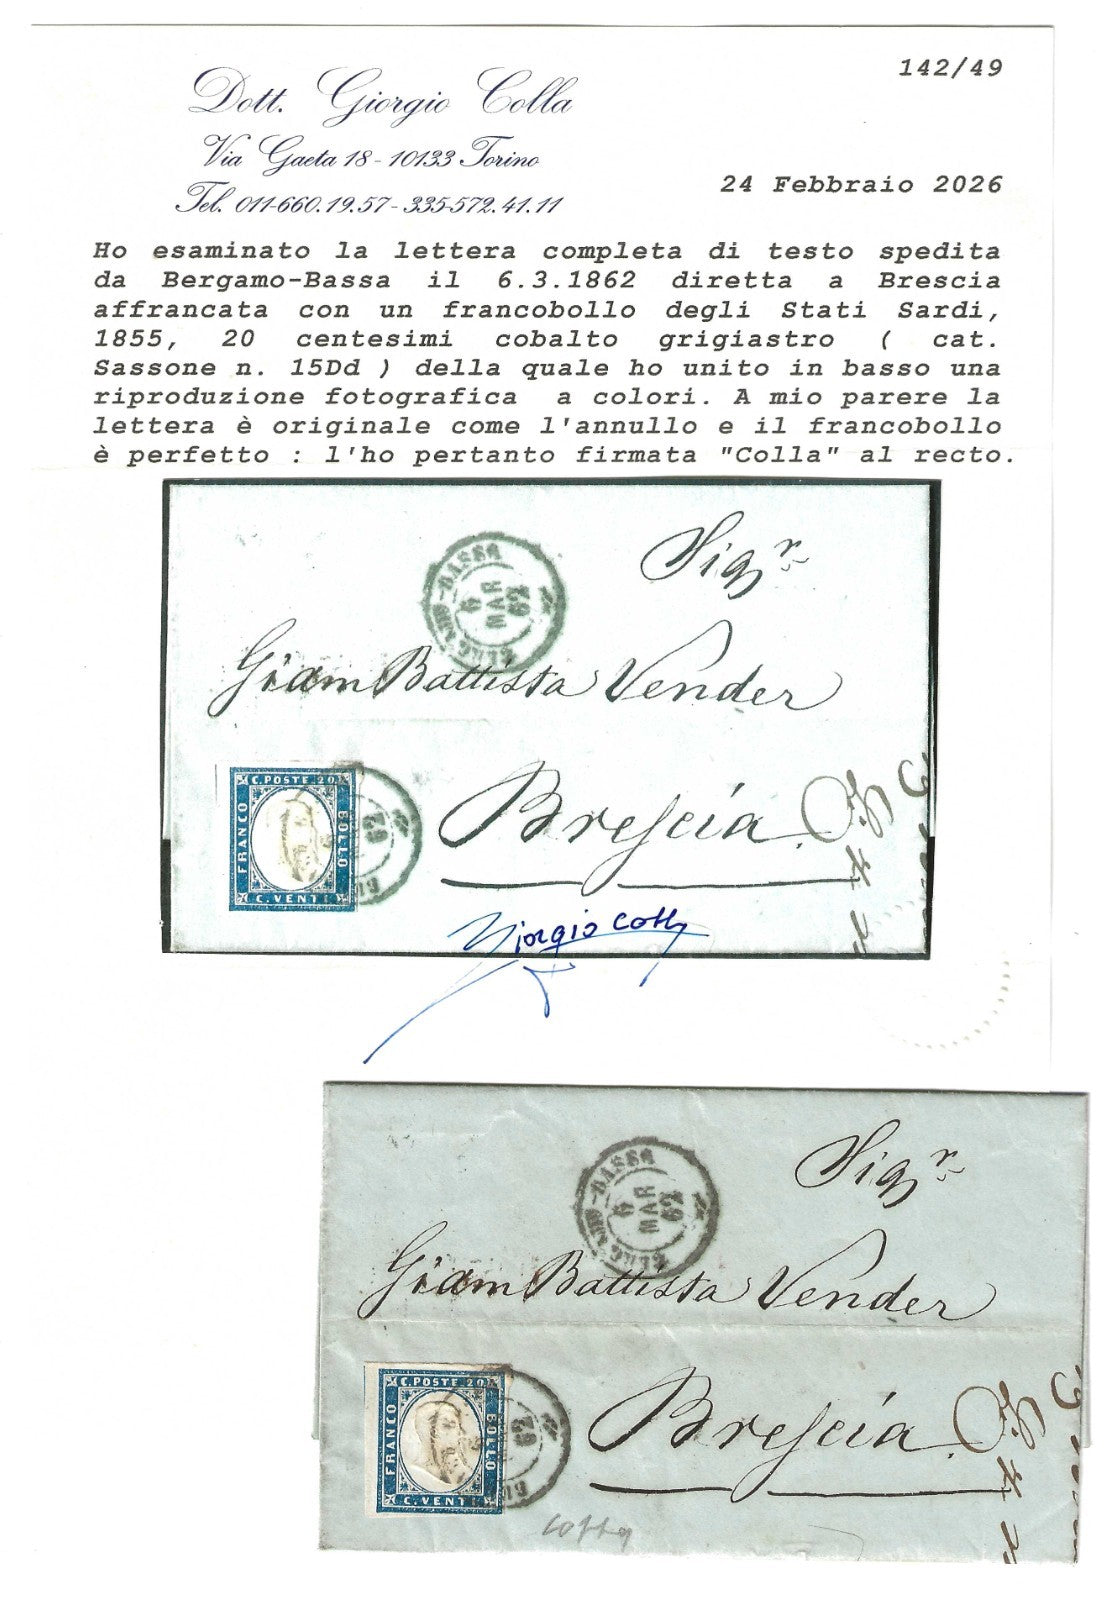 142/49
Dott. Giorgio Colla
Via Gaeta 18 - 10133 Torino
Tel. 011-660.19.57 - 335-572.41.11
24 Febbraio 2026
Ho esaminato la lettera completa di testo spedita
da Bergamo-Bassa il 6.3.1862 diretta a Brescia
affrancata con un francobollo degli Stati Sardi,
1855, 20 centesimi cobalto grigiastro ( cat.
Sassone n. 15Dd ) della quale ho unito in basso una
riproduzione fotografica a colori. A mio parere la
lettera è originale come l'annullo e il francobollo
è perfetto : l'ho pertanto firmata "Colla" al recto.
BASSA
6
MAR
62
Sigr
Giam Battista Vender
C. POSTE 20
FRANCO
BOLLO
C. VENTI
62
Brescia
Giorgio Colla
BASSA
6
MAR
62
Sigr
Giam Battista Vender
C. POSTE 20
FRANCO
BOLLO
C. VENTI
62
Brescia
Colla